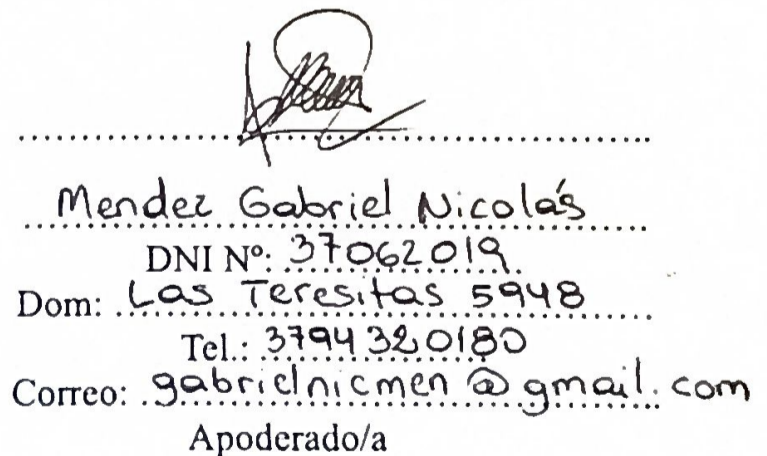 Mendez Gabriel Nicolás
DNI Nº: 37062019
Dom: Las Teresitas 5948
Tel.: 3794320180
Correo: gabrielnicmen@gmail.com
Apoderado/a